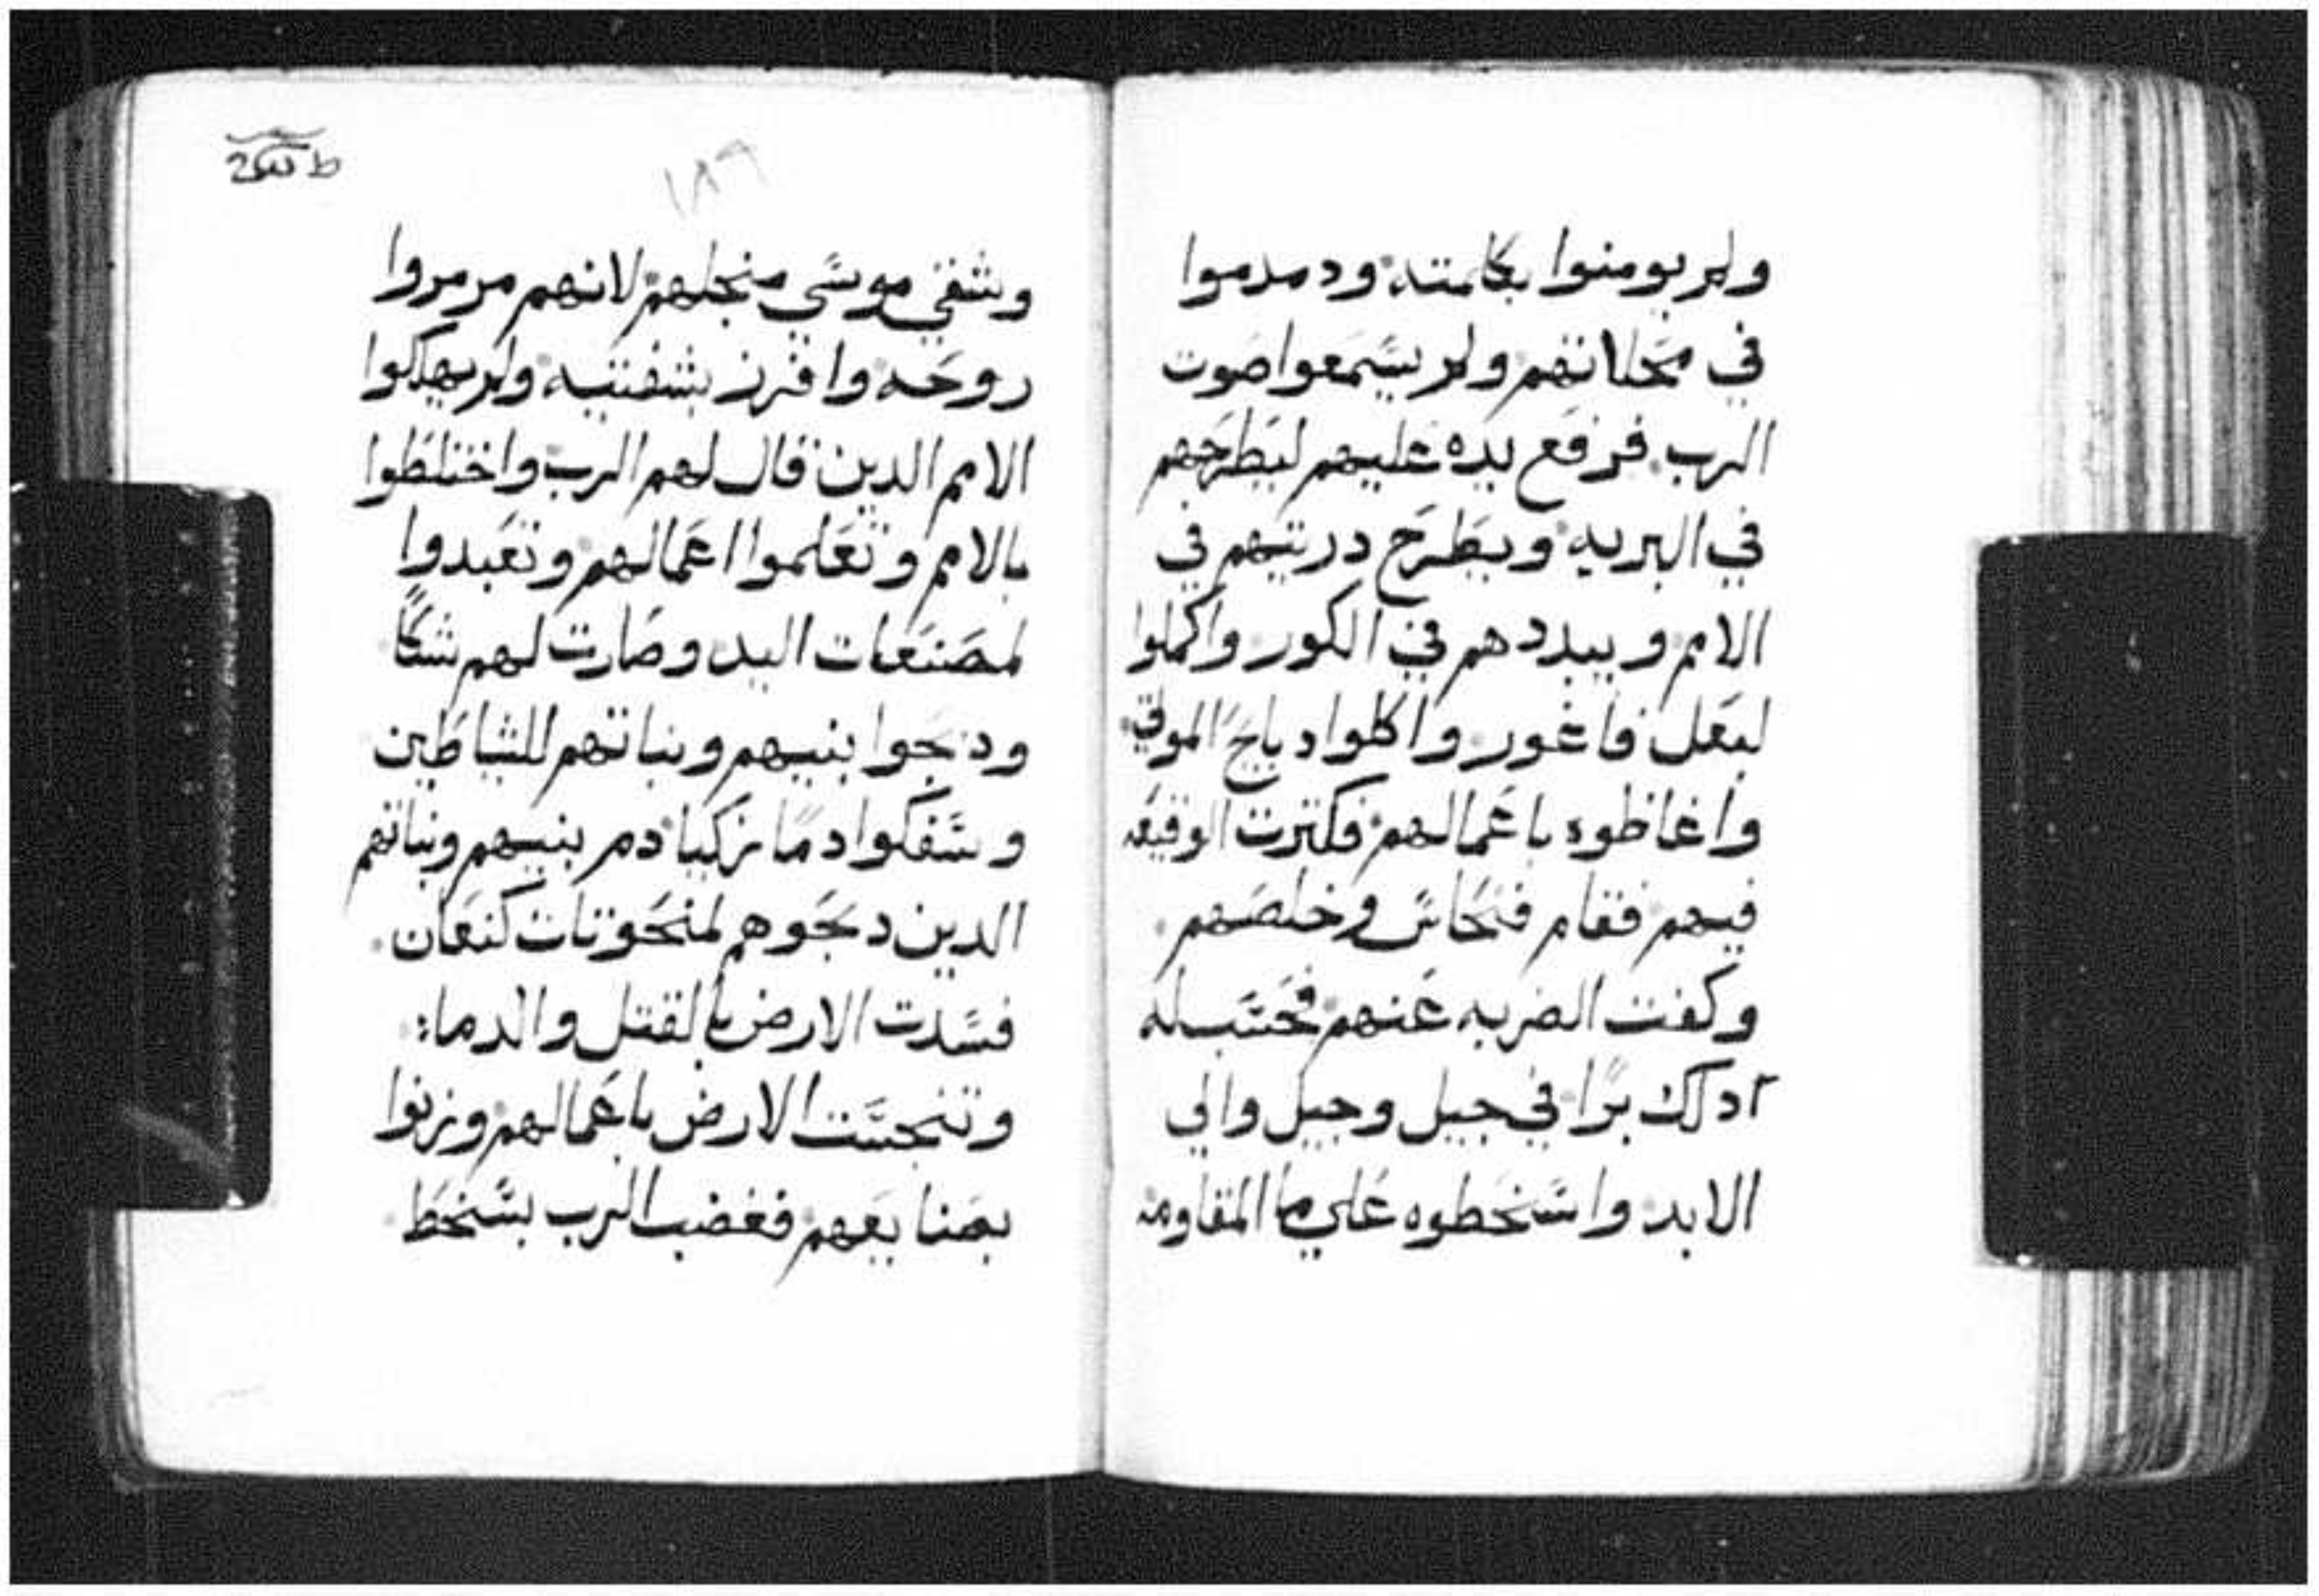 ولم يومنوا بكلمته ودمدموا
في محلاتهم ولم يسمعوا صوت
الرب فرفع يده عليهم ليطرحهم
في البريه ويطرح دريتهم في
الامم ويبددهم في الكور واكملوا
لبعل فاغور واكلوا دبايح الموتي
واغاظوه باعمالهم فكترت الوقيعه
فيهم فقام فنحاس وخلصهم
وكفت الضربه عنهم فحسب له
ادلك برا في جيل وجيل والي
الابد واسخطوه علي ما المقاومه
١٨٩
وشقي موسي منجلهم لانهم مرمروا
روحه وافرز بشفتيه ولم يهلكوا
الامم الدين قال لهم الرب واختلطوا
بالامم وتعلموا اعمالهم وتعبدوا
لمصنعات اليد وصارت لهم شكا
ودبحوا بنيهم وبناتهم للشياطين
وسفكوا دما زكيا دم بنيهم وبناتهم
الدين دبحوهم لمنحوتات كنعان
فسدت الارض بالقتل والدماء
وتنجست الارض باعمالهم وزنوا
بصنايعهم فغضب الرب بسخط